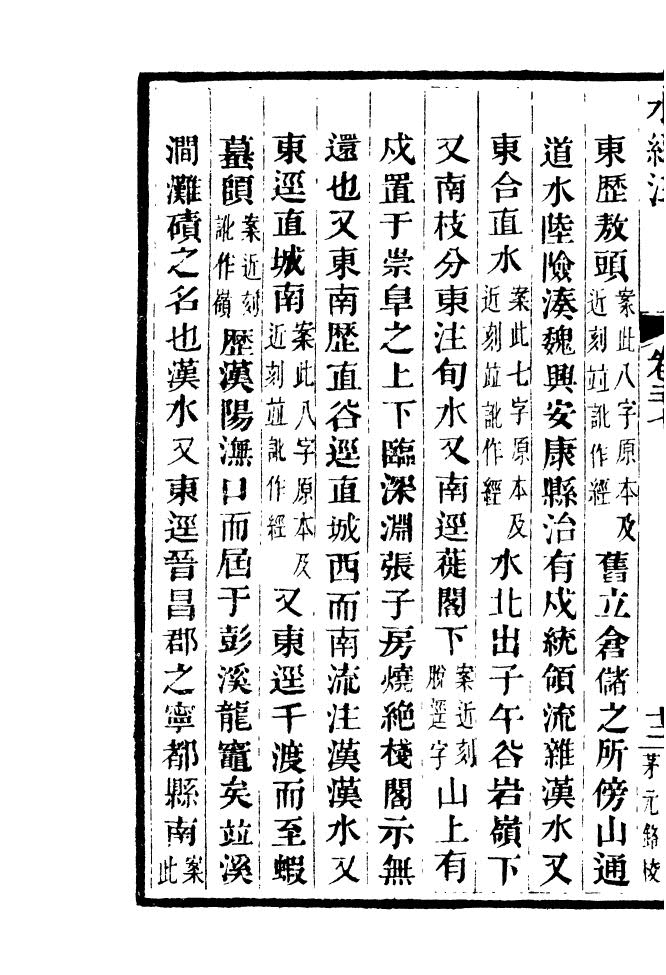 水經注 卷二十七 十二 茅元銘校
東歷敖頭案此八字原本及近刻竝訛作經舊立倉儲之所傍山通
道水陸險湊魏興安康縣治有戍統領流雜漢水又
東合直水案此七字原本及近刻竝訛作經水北出子午谷岩嶺下
又南枝分東注旬水又南逕蓰閣下案近刻脫逕字山上有
戍置于崇阜之上下臨深淵張子房燒絶棧閣示無
還也又東南歷直谷逕直城西而南流注漢漢水又
東逕直城南案此八字原本及近刻竝訛作經又東逕千渡而至蝦
蟇頤案近刻訛作嶺歷漢陽㵲口而屆于彭溪龍竈矣竝溪
澗灘磧之名也漢水又東逕晉昌郡之寧都縣南案此